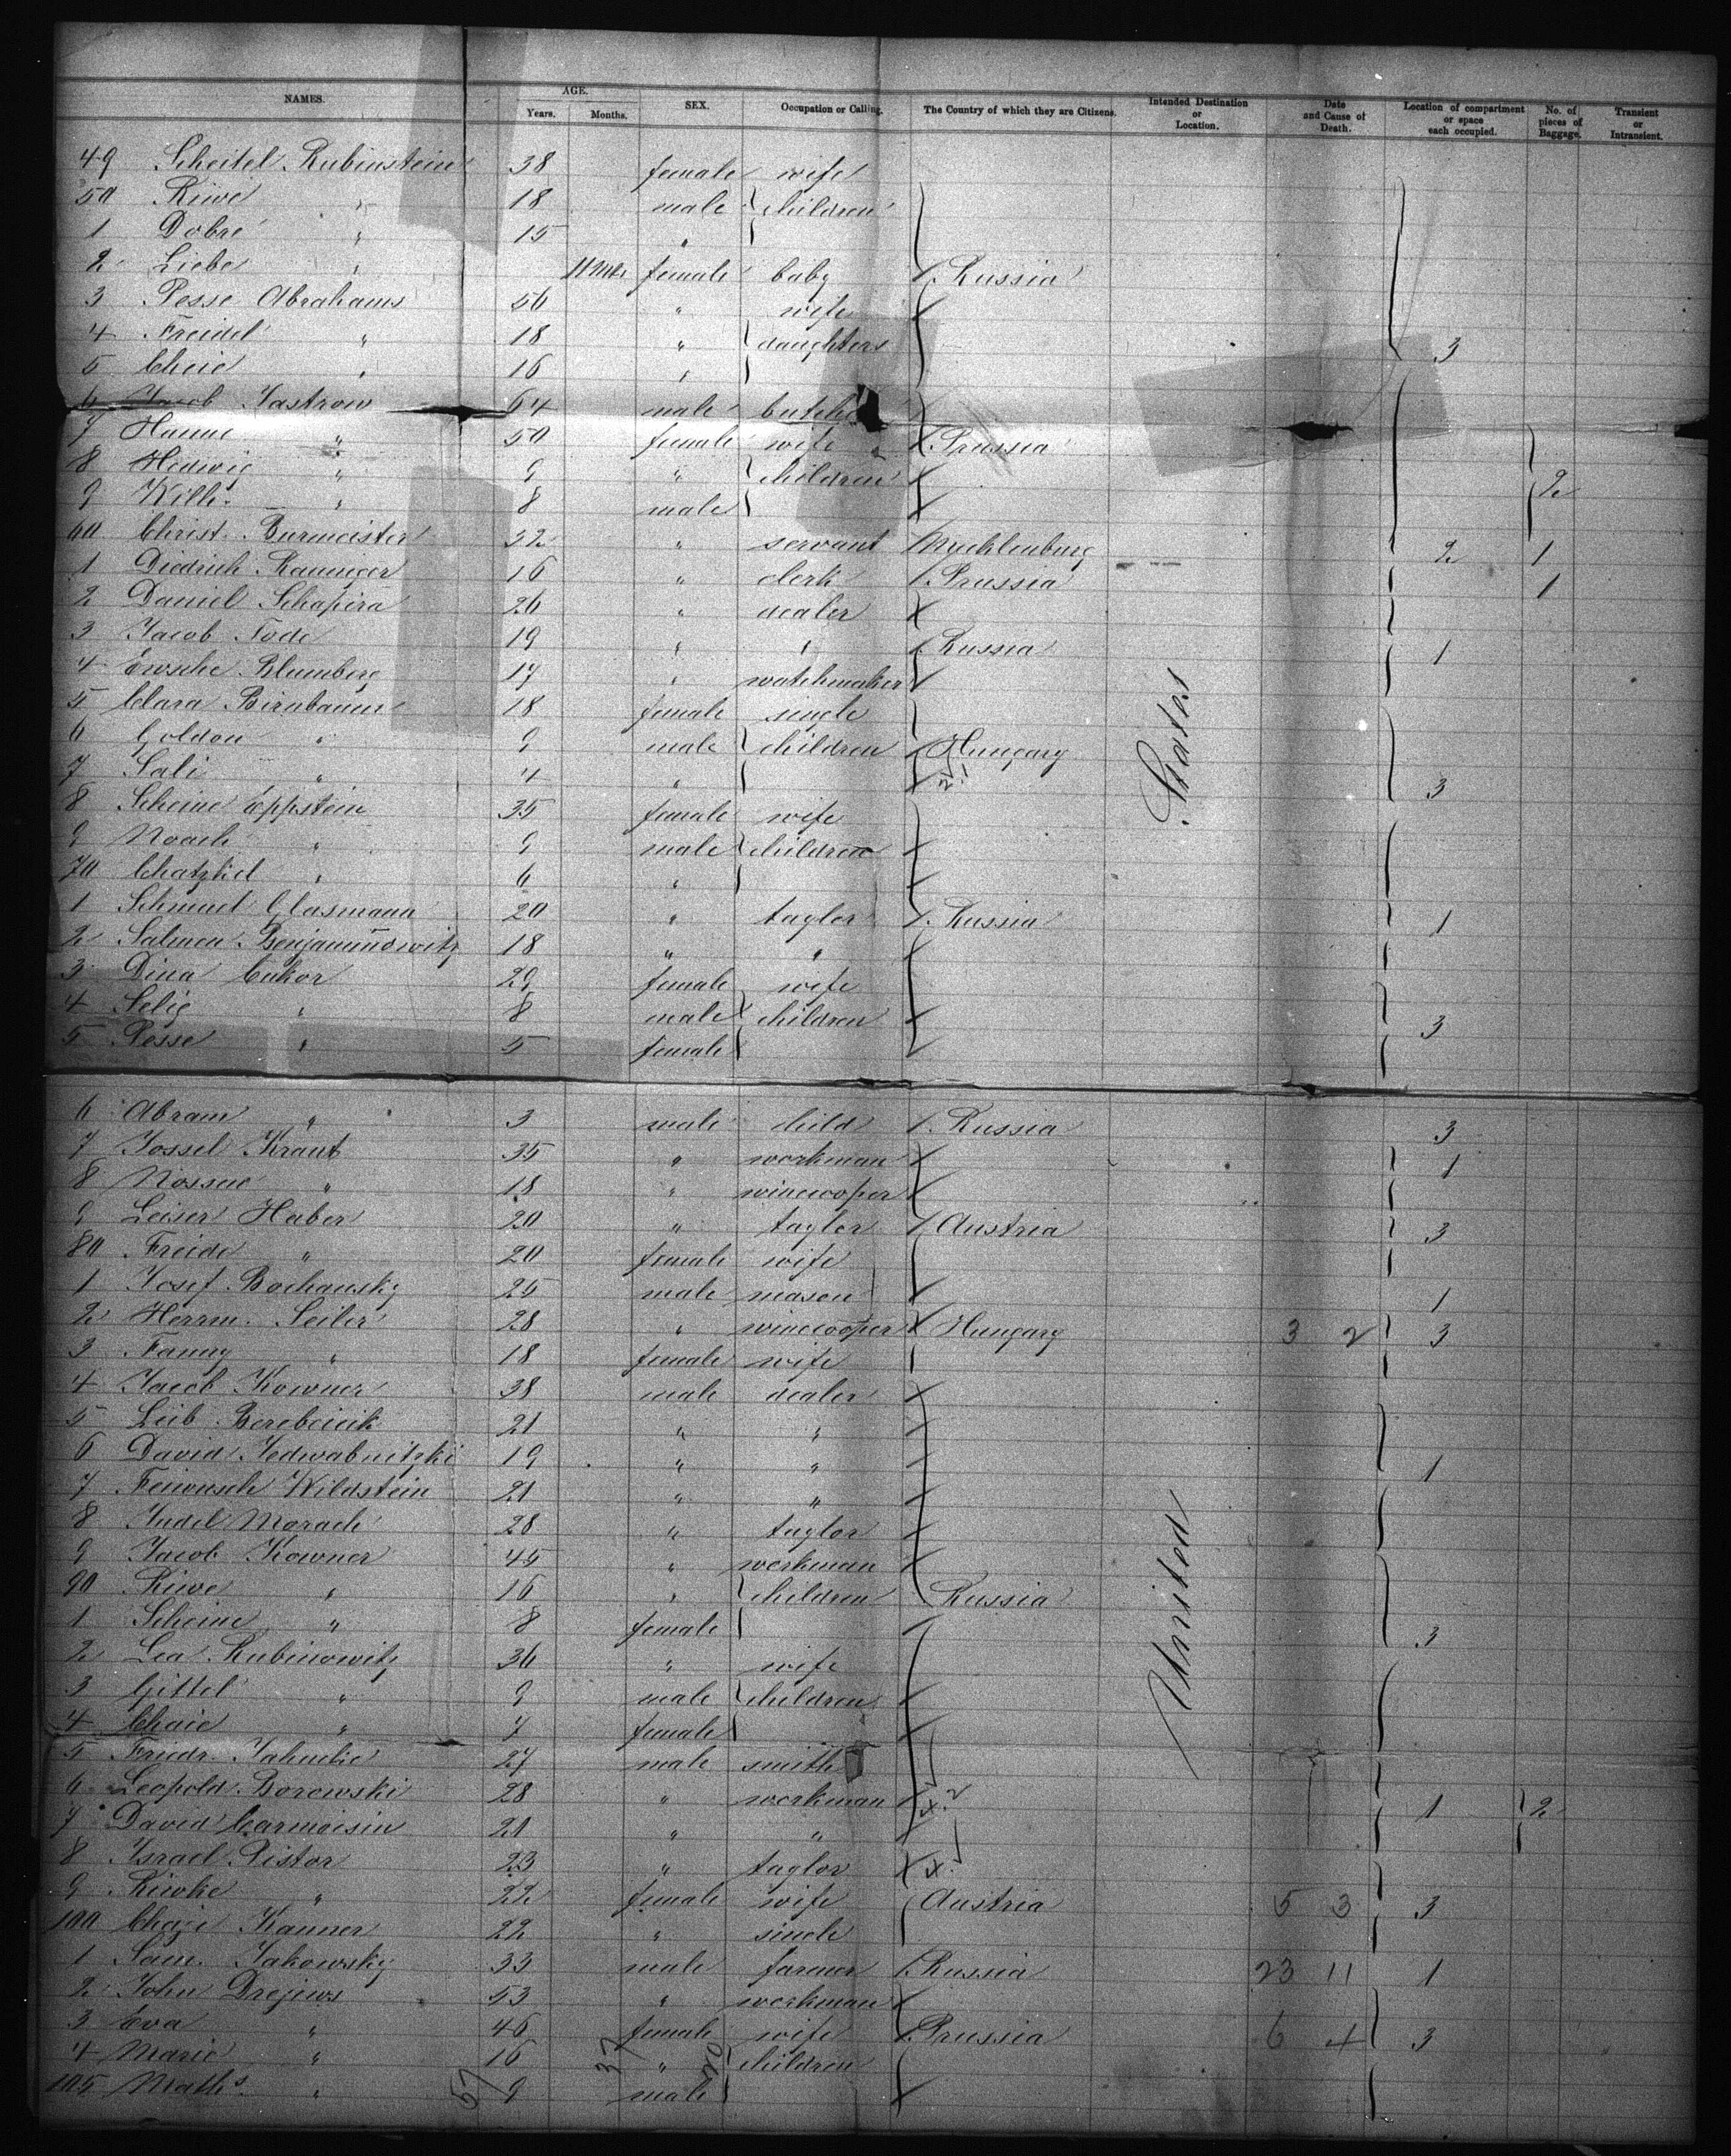 NAMES. AGE. Years. Months. SEX. Occupation or Calling. The Country of which they are Citizens. Intended Destination or Location. Date and Cause of Death. Location of compartment or space each occupied. No. of pieces of Baggage. Transient or Intransient.
49 Scheitel Rubinstein 38 female wife
50 Riwe " 18 male children
1 Dobre " 15 "
2 Liebe " 11 female baby Russia
3 Pesse Abrahams 56 " wife
4 Freidel " 18 " daughters 3
5 Chaie " 16 "
6 Jacob Jastrow 64 male
7 Hanne " 50 female wife Prussia
8 Hedwig " 9 " children 2
9 Wilh. " 8 male
60 Christ. Burmeister 32 " servant Mecklenburg 2 1
1 Diedrich 16 " clerk Prussia 1
2 Daniel Schapira 26 " dealer
3 Jacob Tode 19 " " Russia 1
4 Blumberg 17 " watchmaker
5 Clara Birnbaum 18 female single
6 Goldon " 9 male children Hungary
7 Sali " 4 " 2.1 3
8 Scheine Eppstein 35 female wife
9 Noach " 9 male children
70 Chatzkel " 6 "
1 Schmuel Glasmann 20 " taylor Russia 1
2 Salmen 18 " "
3 Dina Cukor 29 female wife
4 Selig " 8 male children 3
5 Pesse " 5 female
6 Abram " 3 male child Russia 3
7 Jossel Kraut 35 " workman 1
8 Nossen " 18 " winecooper
9 Leiser Haber 20 " taylor Austria 3
80 Freide " 20 female wife
1 Josef Bochansky 25 male mason 1
2 Herrm. Seiler 28 " winecooper Hungary 3 2 3
3 Fanny " 18 female wife
4 Jacob Kowner 38 male dealer
5 Leib 21 " "
6 David Jedwabnitzki 19 " " 1
7 Feiwusch Wildstein 21 " "
8 Judel Morach 28 " taylor
9 Jacob Kowner 45 " workman
90 Riwe " 16 " children Russia
1 Scheine " 8 female 3
2 Lea Rubinowitz 36 " wife
3 Gittel " 9 male children
4 Chaie " 7 female
5 Friedr. Jahncke 27 male smith
6 Leopold Borewski 28 " workman 1 2
7 David Carmoisin 21 " "
8 Israel Pistor 23 " taylor
9 Riwke " 22 female wife Austria 5 3 3
100 Chaje Kanner 22 " single
1 Sam. Jakowsky 33 male farmer Russia 23 11 1
2 John Drejews 53 " workman
3 Eva " 46 female wife Prussia 6 4 3
4 Marie " 16 " children
105 Maths. " 9 male
57 37 20
United States